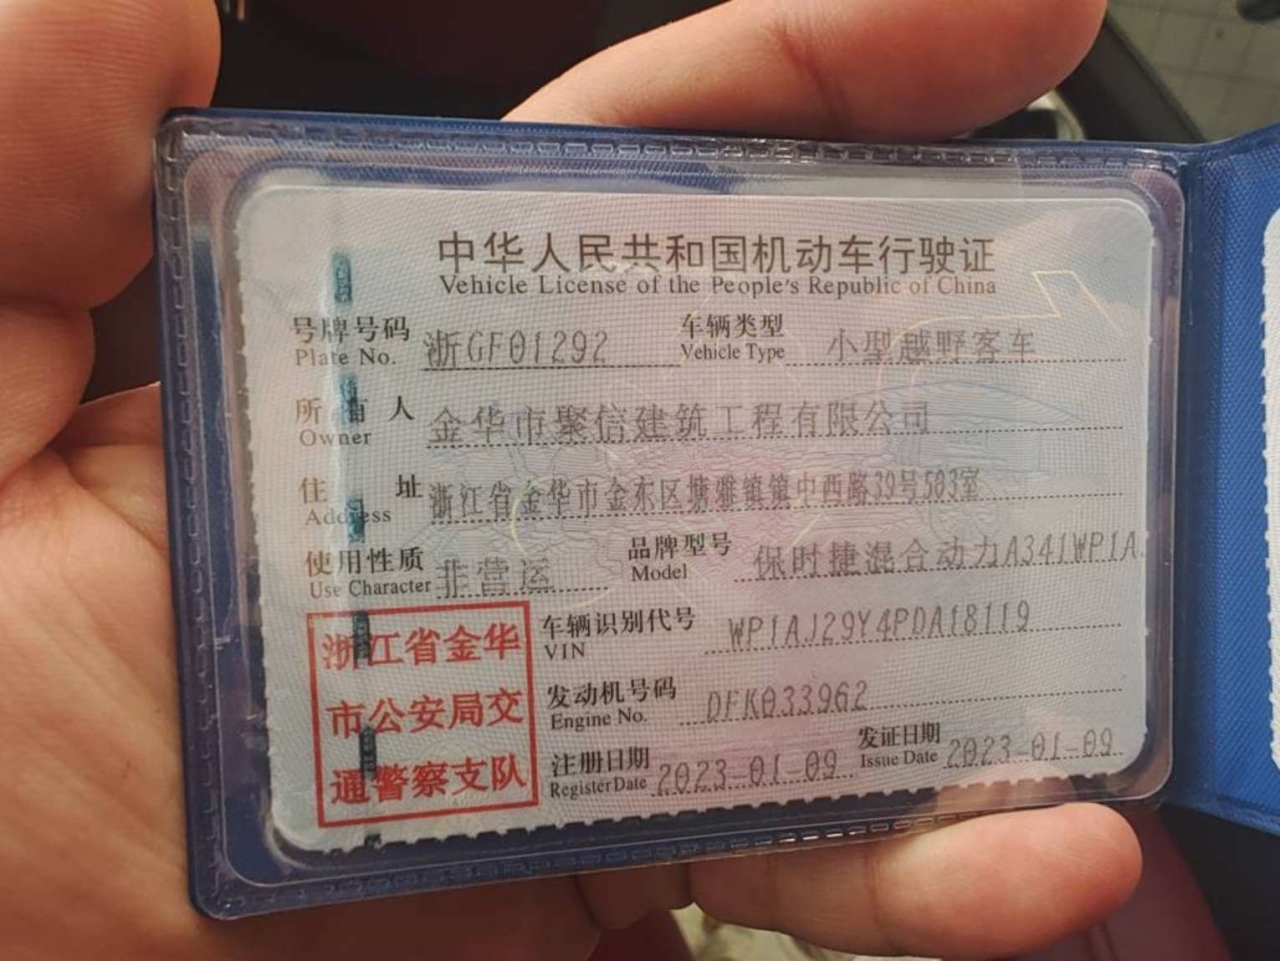 中华人民共和国机动车行驶证
Vehicle License of the People's Republic of China
号牌号码 浙GF01292 车辆类型 小型越野客车
Plate No. Vehicle Type
所有人 金华市聚信建筑工程有限公司
Owner
住址 浙江省金华市金东区塘雅镇镇中西路39号503室
Address
使用性质 非营运 品牌型号 保时捷混合动力A341WP1A
Use Character Model
车辆识别代号 WP1AJ29Y4PDA18119
VIN
发动机号码 DFK033962
Engine No.
注册日期 2023-01-09 发证日期 2023-01-09
Register Date Issue Date
浙江省金华
市公安局交
通警察支队